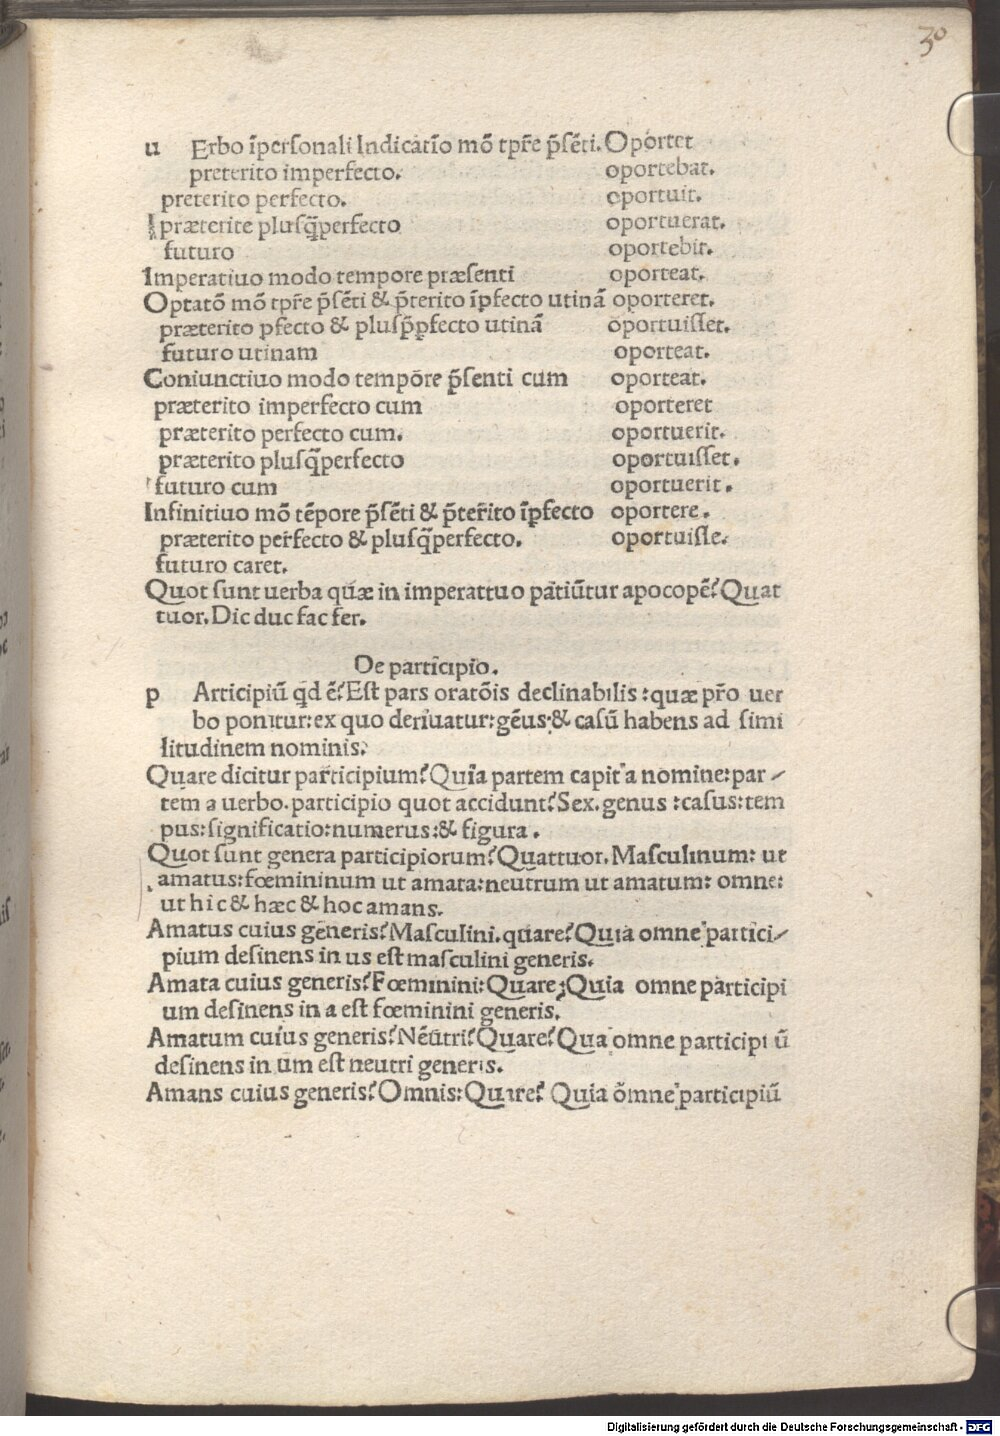 30
u Erbo īpersonali Indicatīo mō tpr̄e p̄sēti. Oportet
preterito imperfecto. oportebat.
preterito perfecto. oportuit.
præterite plusq̄perfecto oportuerat.
futuro oportebit.
Imperatiuo modo tempore præsenti oporteat.
Optatō mō tpr̄e p̄sēti & p̄terito īpfecto utinā oporteret.
præterito pfecto & plusp̄pfecto utinā oportuisset.
futuro utinam oporteat.
Coniunctiuo modo tempōre p̄senti cum oporteat.
præterito imperfecto cum oporteret
præterito perfecto cum. oportuerit.
præterito plusq̄perfecto oportuisset.
futuro cum oportuerit.
Infinitiuo mō tēpore p̄sēti & p̄terito īpfecto oportere.
præterito perfecto & plusq̄perfecto. oportuisse.
futuro caret.
Quot sunt uerba quæ in imperattuo patiūtur apocopē? Quat
tuor. Dic duc fac fer.
De participio.
p Articipiū qd ē? Est pars oratōis declinabilis: quæ pr̄o uer
bo ponitur: ex quo deriuatur: gēus: & casū habens ad simi
litudinem nominis:
Quare dicitur participium? Quia partem capit a nomine: par-
tem a uerbo. participio quot accidunt? Sex. genus: casus: tem
pus: significatio: numerus: & figura.
Quot sunt genera participiorum? Quattuor. Masculinum: ut
amatus: fœmininum ut amata: neutrum ut amatum: omne:
ut hic & hæc & hoc amans.
Amatus cuius generis? Masculini. quare? Quia omne partici-
pium desinens in us est masculini generis.
Amata cuius generis? Fœminini: Quare; Quia omne participi
um desinens in a est fœminini generis.
Amatum cuius generis? Nēutri? Quare? Qua omne participi ū
desinens in um est neutri generis.
Amans cuius generis? Omnis: Quare? Quia ōmne participiū
Digitalisierung gefördert durch die Deutsche Forschungsgemeinschaft - DFG